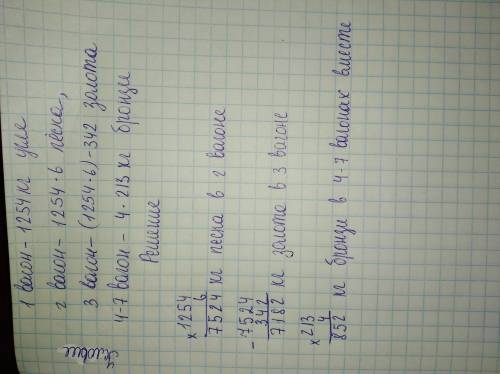 Условие
1 вагон - 1254 кг угля
2 вагон - 1254 · 6 песка,
3 вагон - (1254 · 6) - 342 золота
4-7 вагон - 4 · 213 кг бронзы
Решение
× 1254
6
7524 кг песка в 2 вагоне
- 7524
342
7182 кг золота в 3 вагоне
× 213
4
852 кг бронзы в 4-7 вагонах вместе